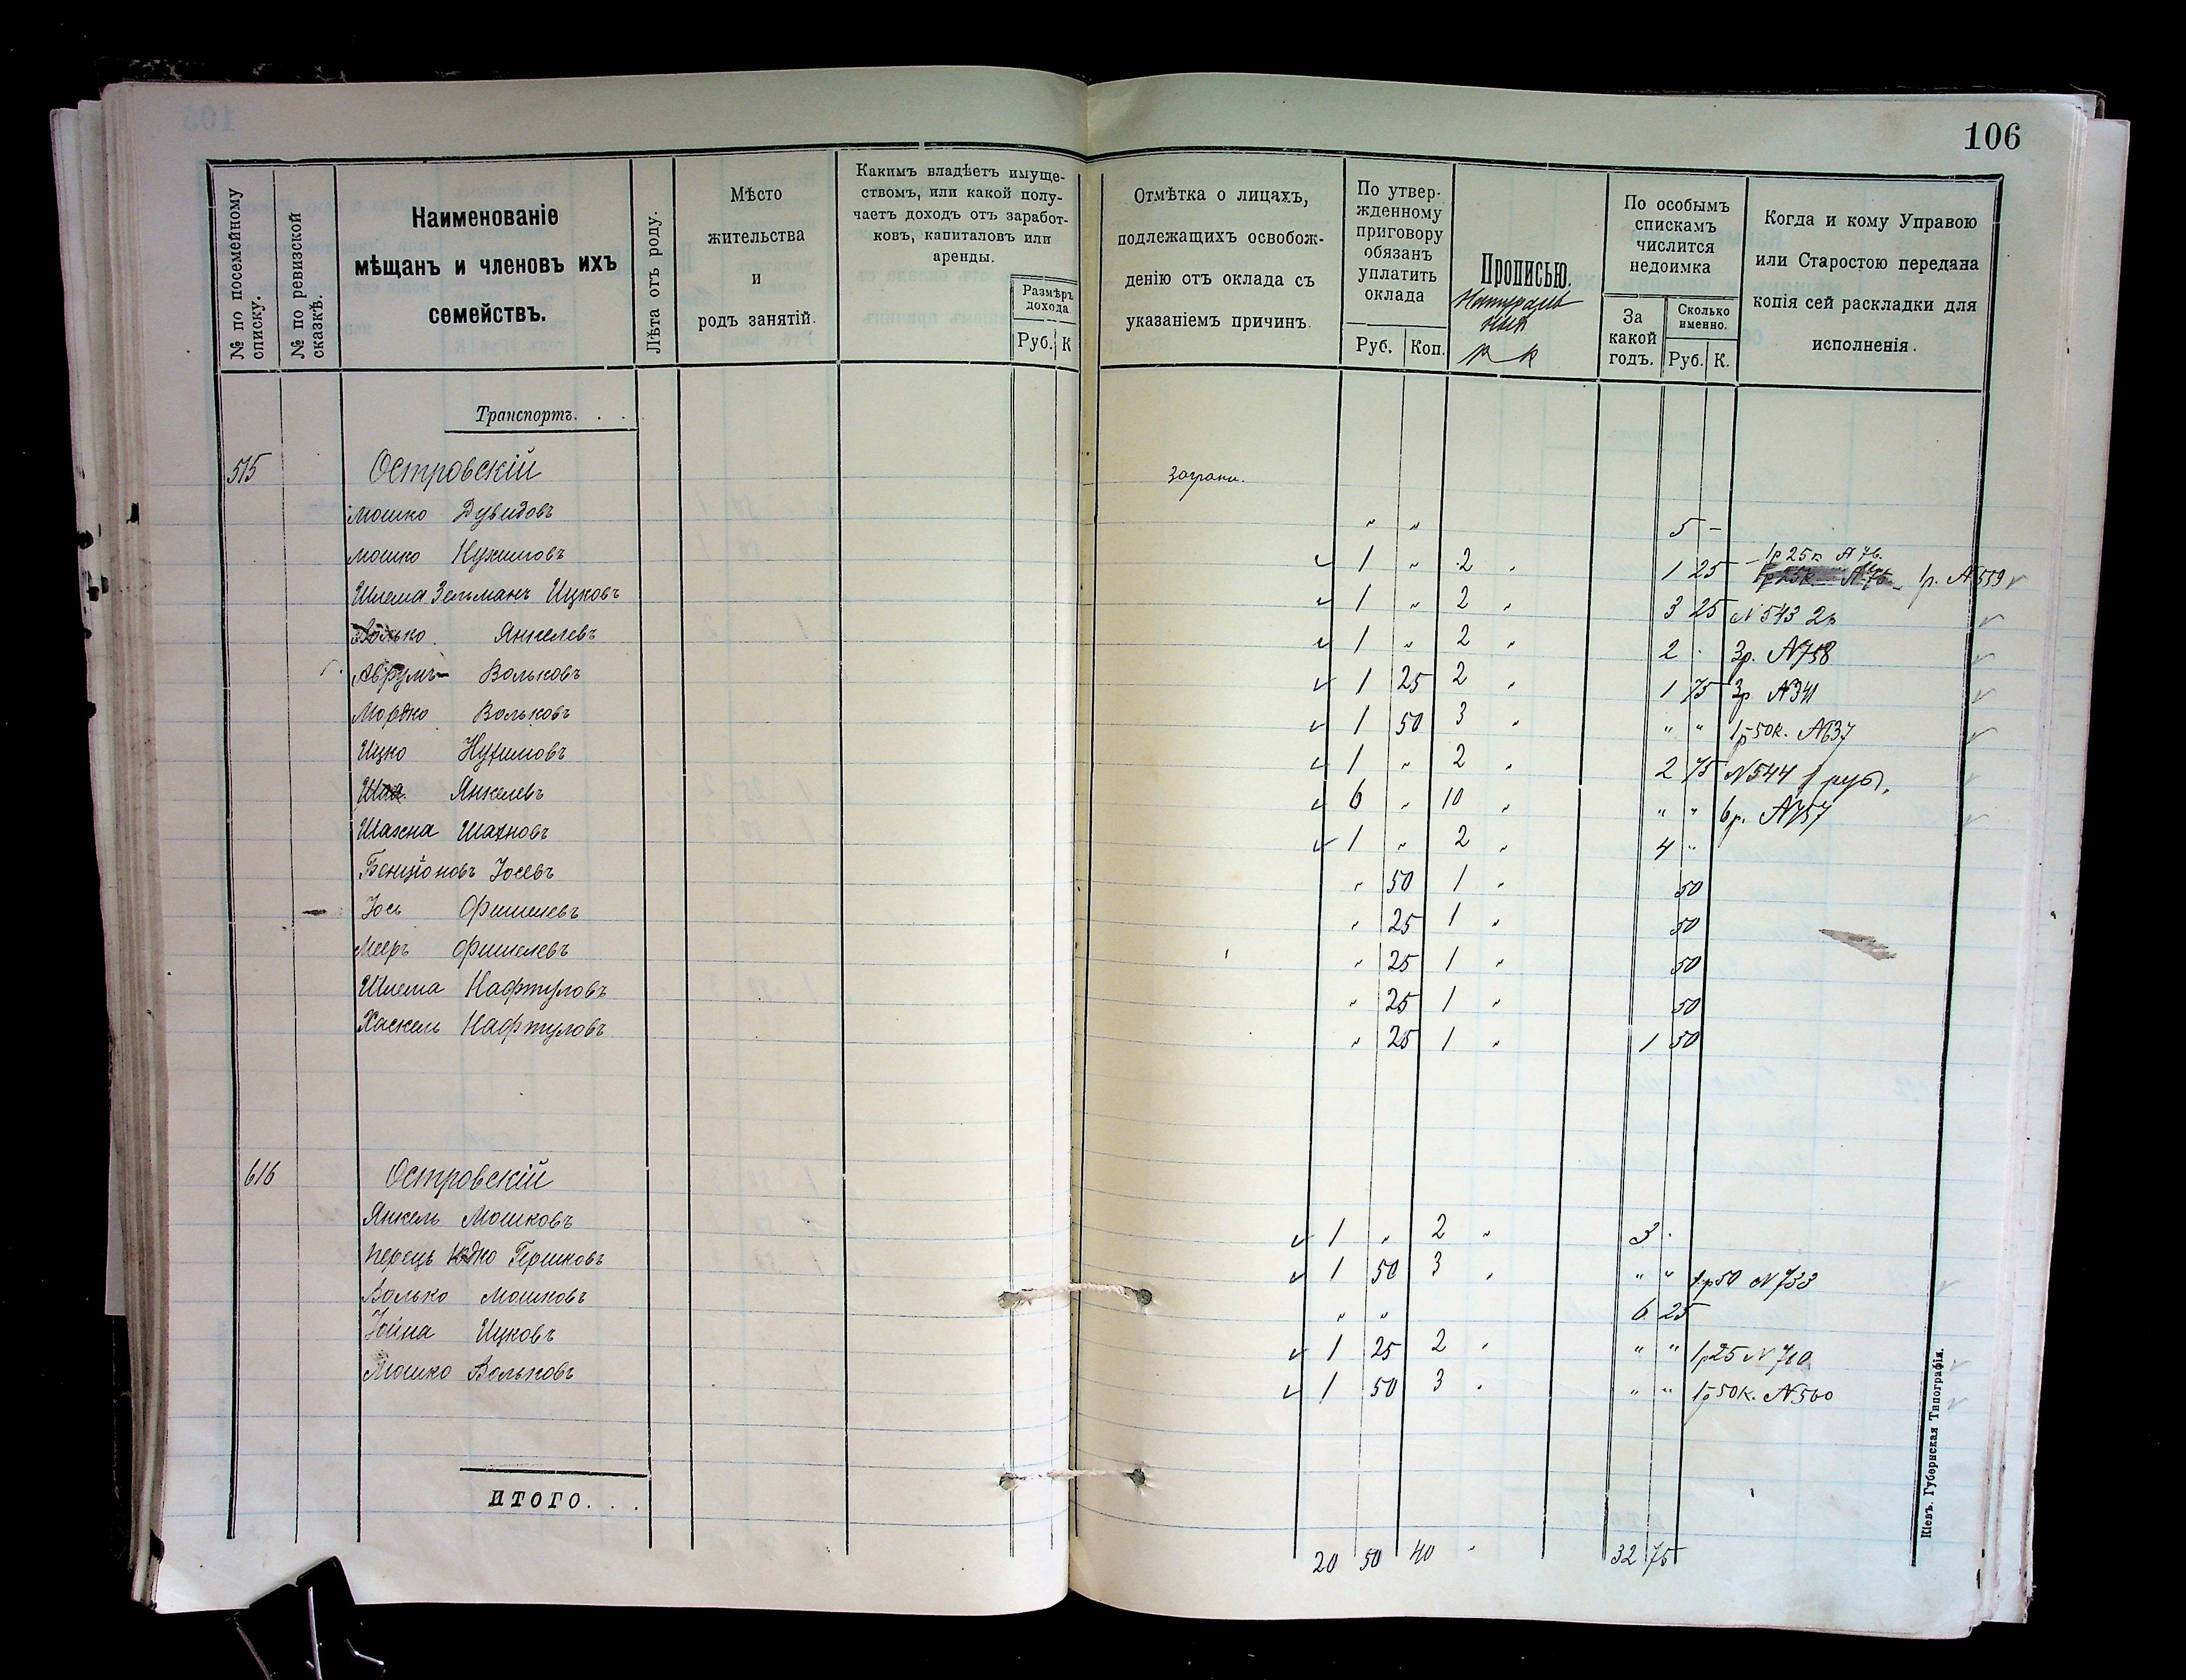 106
№ по посемейному списку.
№ по ревизской сказкѣ.
Наименованіе
мѣщанъ и членовъ ихъ
семействъ.
Лѣта отъ роду.
Мѣсто
жительства
и
родъ занятій.
Какимъ владѣетъ имуще-
ствомъ, или какой полу-
чаетъ доходъ отъ заработ-
ковъ, капиталовъ или
аренды.
Размѣръ
дохода
Руб. К
Отмѣтка о лицахъ,
подлежащихъ освобож-
денію отъ оклада съ
указаніемъ причинъ.
По утвер-
жденному
приговору
обязанъ
уплатить
оклада
Руб. Коп.
Прописью.
р к
По особымъ
спискамъ
числится
недоимка
За
какой
годъ.
Сколько
именно.
Руб. К.
Когда и кому Управою
или Старостою передана
копія сей раскладки для
исполненія.
Транспортъ. . .
515 Островскій
Мошко Дувидовъ „ „ 5 –
Мошко Нухимовъ 1 „ 2 „ 1 25 1р 25к 1р. №559
Шлема Зельманъ Ицковъ 1 „ 2 „ 3 25 №543 2р
Янкелевъ 1 „ 2 „ 2 3р. №758
Аврумъ Вольковъ 1 25 2 „ 1 75 3р №341
Мордко Вольковъ 1 50 3 „ „ „ 1р 50к. №637
Ицко Нухимовъ 1 „ 2 „ 2 75 №544 1 руб.
Янкелевъ 6 „ 10 „ „ „ 6р. №757
Шахна Шахновъ 1 „ 2 „ 4 „
Бенціоновъ Іосевъ „ 50 1 „ 50
Іось Фишелевъ „ 25 1 „ 50
Мееръ Фишелевъ „ 25 1 „ 50
Шлема Нафтуловъ „ 25 1 „ 50
Хаскель Нафтуловъ „ 25 1 „ 1 50
616 Островскій
Янкель Мошковъ 1 „ 2 „ 3
Перець Гершковъ 1 50 3 „ „ „ 1р50 №733
Волько Мошковъ „ „ 6 25
Іойна Ицковъ 1 25 2 „ „ „ 1р25 №710
Мошко Вольковъ 1 50 3 „ „ „ 1р50к. №560
ИТОГО. . .
20 50 40 „ 32 75
Кіевъ. Губернская Типографія.